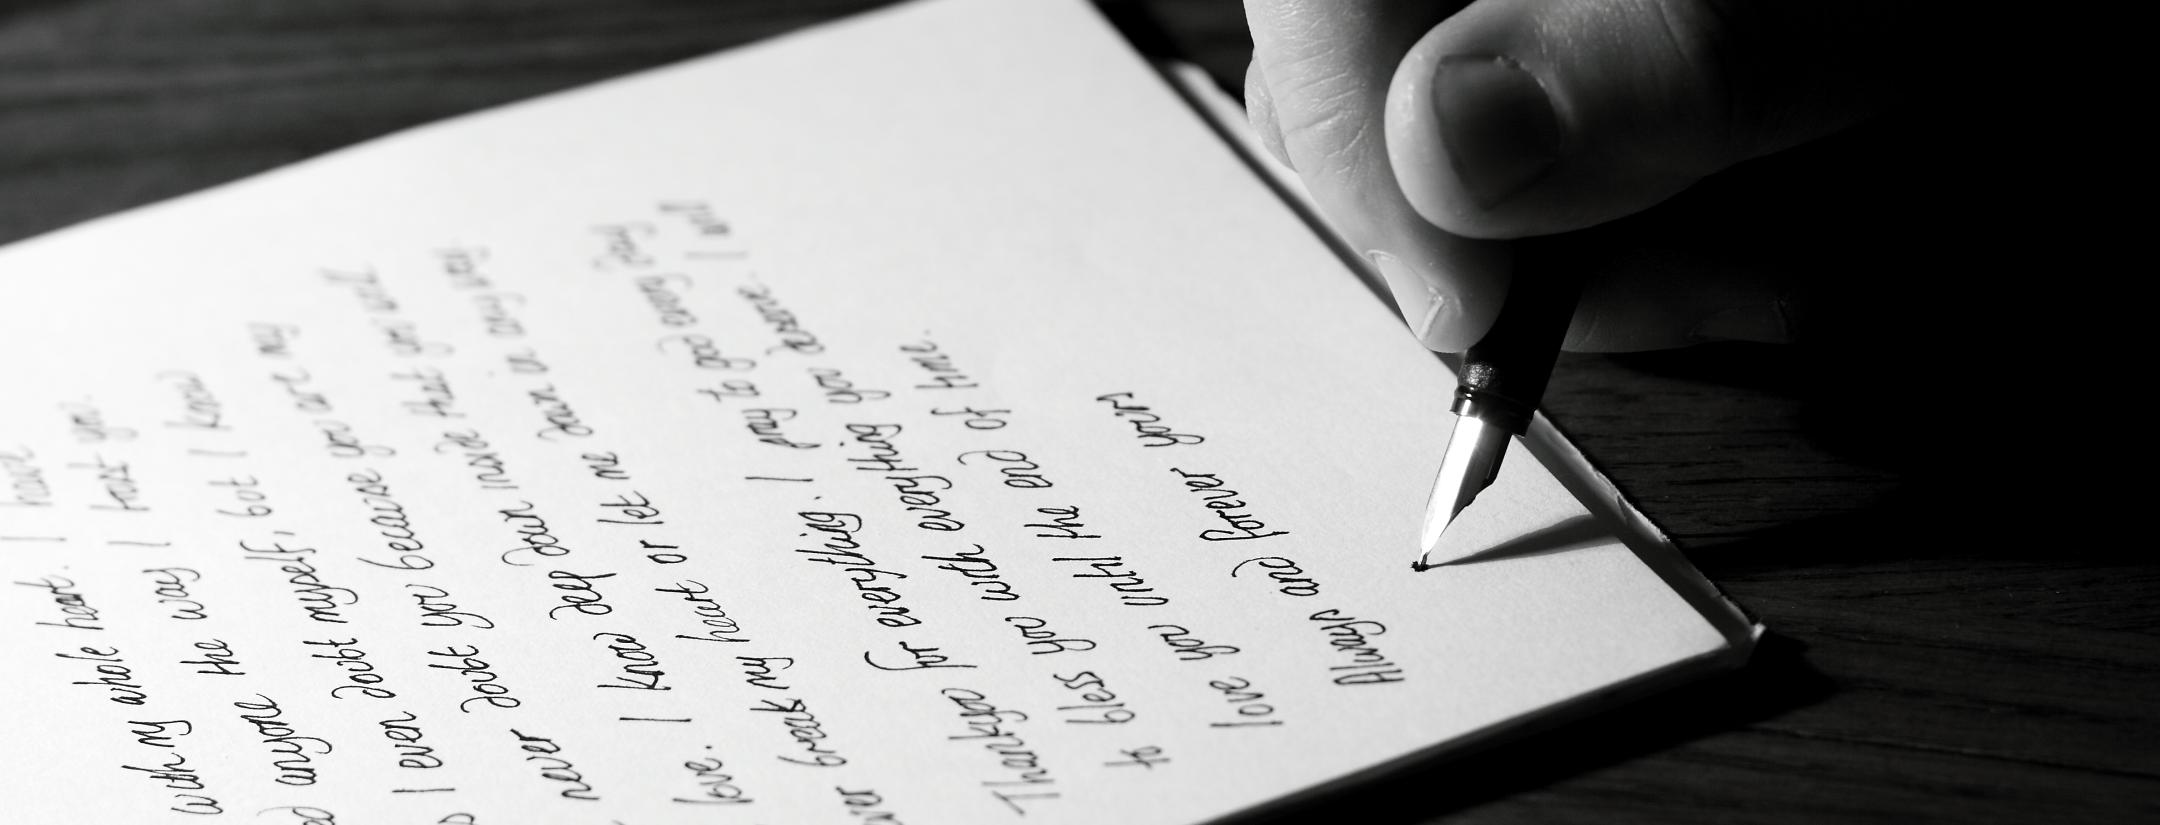 with my whole heart. I have
ed anyone the way I trust you.
s I even doubt myself, but I know
never doubt you because you are my
love. I know deep down inside that you will
ever break my heart or let me down in any way.
Thankyou for everything. I pray to god every day
to bless you with everything you deserve. I will
love you until the end of time.
Always and forever yours